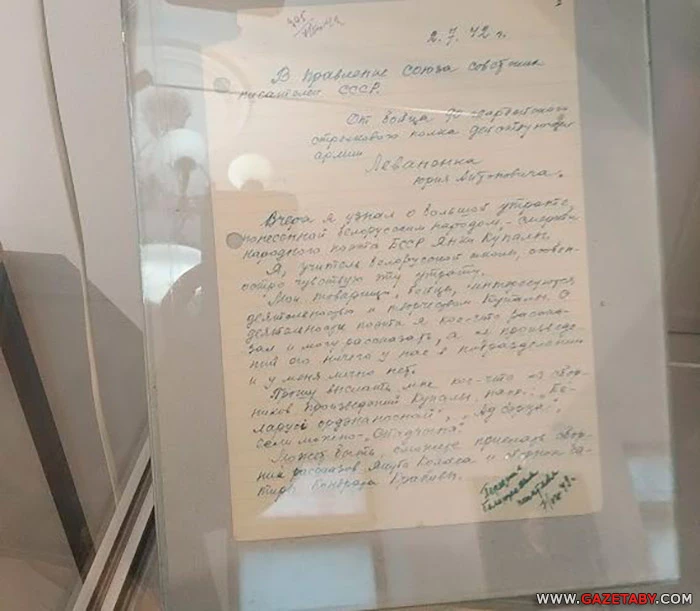 2.7.42 г.
В правление союза советских
писателей СССР.
От бойца 90 гвардейского
стрелкового полка действующей
армии
Леванонка
Юрия Антоновича.
Вчера я узнал о большой утрате,
понесённой белорусским народом, – смерти
народного поэта БССР Янки Купалы.
Я, учитель белорусской школы,
остро чувствую эту утрату.
Мои товарищи, бойцы, интересуются
деятельностью и творчеством Купалы. О
деятельности поэта я кое-что расска-
зал и могу рассказать, а произведе-
ний его ничего у нас в подразделении
и у меня лично нет.
Прошу выслать мне кое-что из сбор-
ников произведений Купалы, напр. „Бе-
ларусі ордэнаноснай", „Ад сэрца",
если можно – „Спадчына".
Может быть, сможете прислать сбор-
ник рассказов Якуба Коласа и сборник са-
тиры Кондрата Крапивы.
WWW.GAZETABY.COM